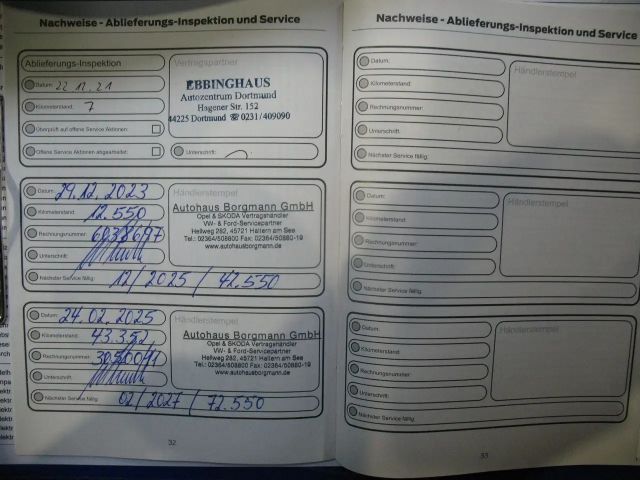 Nachweise - Ablieferungs-Inspektion und Service
Ablieferungs-Inspektion
Vertragspartner
Datum: 22.12.21
EBBINGHAUS
Autozentrum Dortmund
Hagener Str. 152
44225 Dortmund ☎ 0231/409090
Kilometerstand: 7
Überprüft auf offene Service Aktionen:
Offene Service Aktionen abgearbeitet:
Unterschrift:
Datum: 29.12.2023
Händlerstempel
Autohaus Borgmann GmbH
Opel & SKODA Vertragshändler
VW- & Ford-Servicepartner
Hellweg 282, 45721 Haltern am See
Tel.: 02364/508800 Fax: 02364/50880-19
www.autohausborgmann.de
Kilometerstand: 12.550
Rechnungsnummer:
Unterschrift:
Nächster Service fällig: 12/2025 / 42.550
Datum: 24.02.2025
Händlerstempel
Autohaus Borgmann GmbH
Opel & SKODA Vertragshändler
VW- & Ford-Servicepartner
Hellweg 282, 45721 Haltern am See
Tel.: 02364/508800 Fax: 02364/50880-19
www.autohausborgmann.de
Kilometerstand: 43.352
Rechnungsnummer:
Unterschrift:
Nächster Service fällig: 02/2027 / 72.550
32
Nachweise - Ablieferungs-Inspektion und Service
Datum:
Händlerstempel
Kilometerstand:
Rechnungsnummer:
Unterschrift:
Nächster Service fällig:
Datum:
Händlerstempel
Kilometerstand:
Rechnungsnummer:
Unterschrift:
Nächster Service fällig:
Datum:
Händlerstempel
Kilometerstand:
Rechnungsnummer:
Unterschrift:
Nächster Service fällig:
33